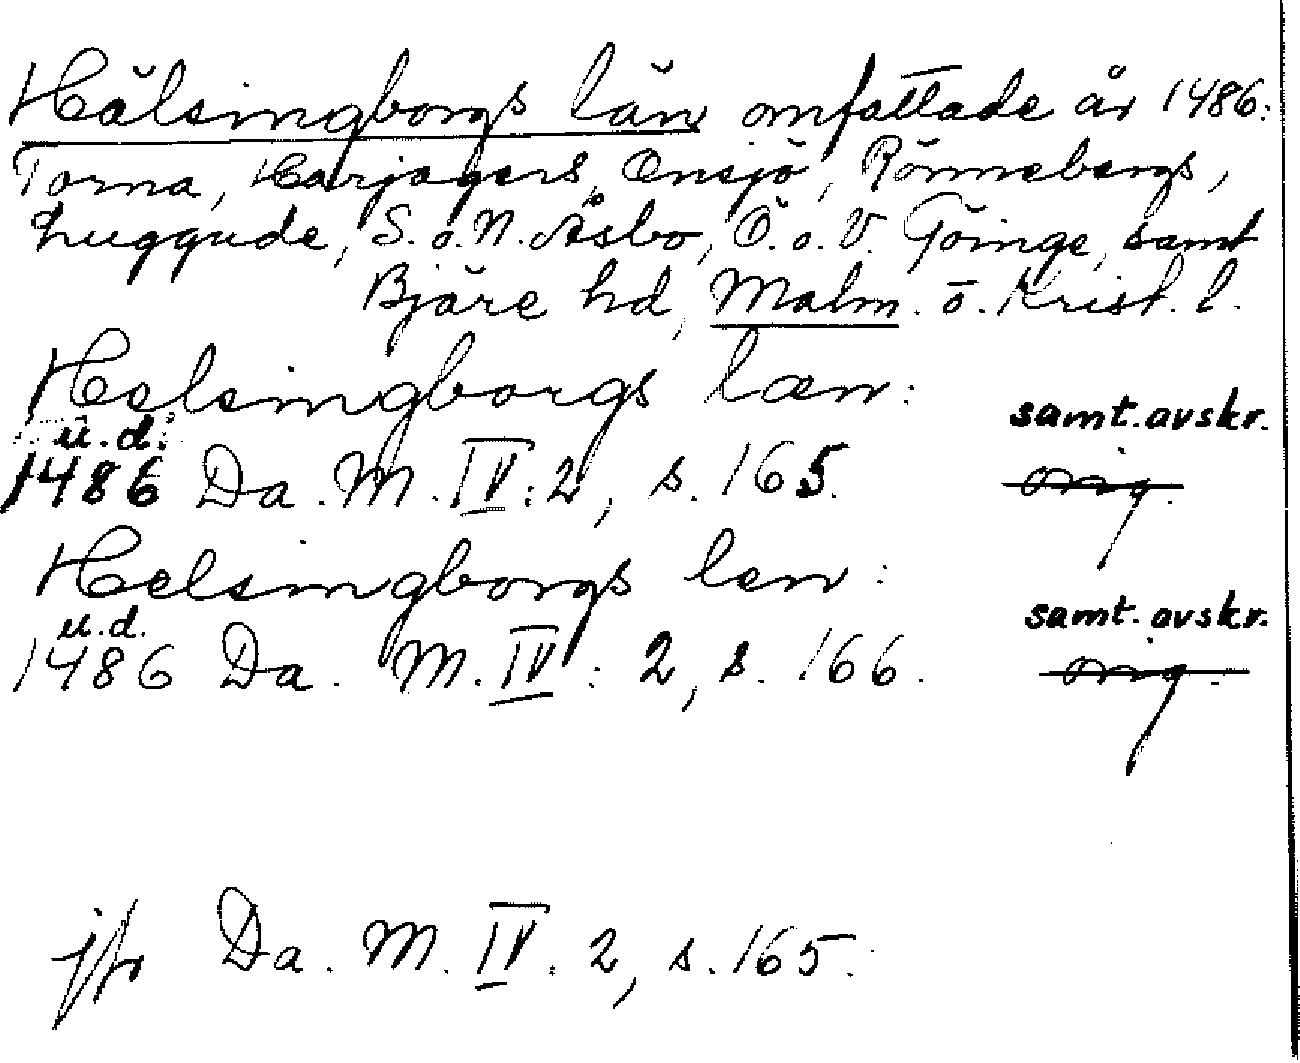 Hälsingborgs län omfattade år 1486:
Torna, Harjagers, Onsjö, Rönnebergs,
Luggude, S. o. N. Åsbo, Ö. o. V. Göinge, samt
Bjäre hd, Malm. o. Krist. l.
Helsingborgs læn:
u.d. samt. avskr.
1486 Da. M. IV: 2, s. 165. orig.
Helsingborgs len:
u.d. samt. avskr.
1486 Da. M. IV: 2, s. 166. orig.
jfr Da. M. IV. 2, s. 165.